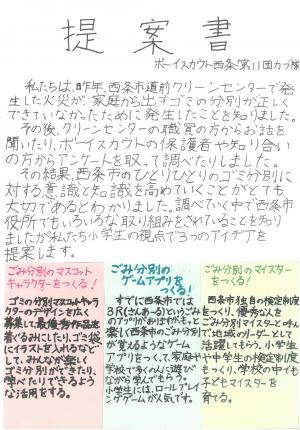 提案書
ボーイスカウト西条第11団カブ隊
私たちは、昨年、西条市道前クリーンセンターで発
生した火災が、家庭から出すゴミの分別が正しく
できていなかったために発生したことを知りました。
その後、クリーンセンターの職員の方からお話を
聞いたり、ボーイスカウトの保護者や知り合い
の方からアンケートを取って調べたりしました。
その結果、西条市のひとりひとりのゴミ分別に
対する意識と知識を高めていくことがとても
大切であるとわかりました。調べていく中で西条市
役所でもいろいろな取り組みをされていることを知り
ましたが私たち小学生の視点で3つのアイデアを
提案します。
ごみ分別のマスコット
キャラクターをつくる!
ゴミの分別マスコットキャラ
クターのデザインを広く
募集して、最優秀作品を
着ぐるみにしたり、ゴミ袋
にイラストを入れるなど
して、みんなが楽しく
ゴミ分別ができたり、
学べたりできるよう
な活用をする。
ごみ分別の
ゲームアプリを
つくる!
すでに西条市では
3R(さんあ〜る)というごみ
のアプリがありますが、もっと
楽しく西条市のごみ分別
が覚えるようなゲーム
アプリをつくって、家庭や
学校で多くの人に遊び
ながら学んでもらう。
小学生には、ロールプレ
イングゲームが人気です。
ごみ分別のマイスター
をつくる!
西条市独自の検定制度
をつくり、優秀な人を
ごみ分別マイスターと呼ん
で、地域のリーダーとして
活躍してもらう。小学生
や中学生の検定制度
もつくり、学校の中でも
子どもマイスターを
育てる。